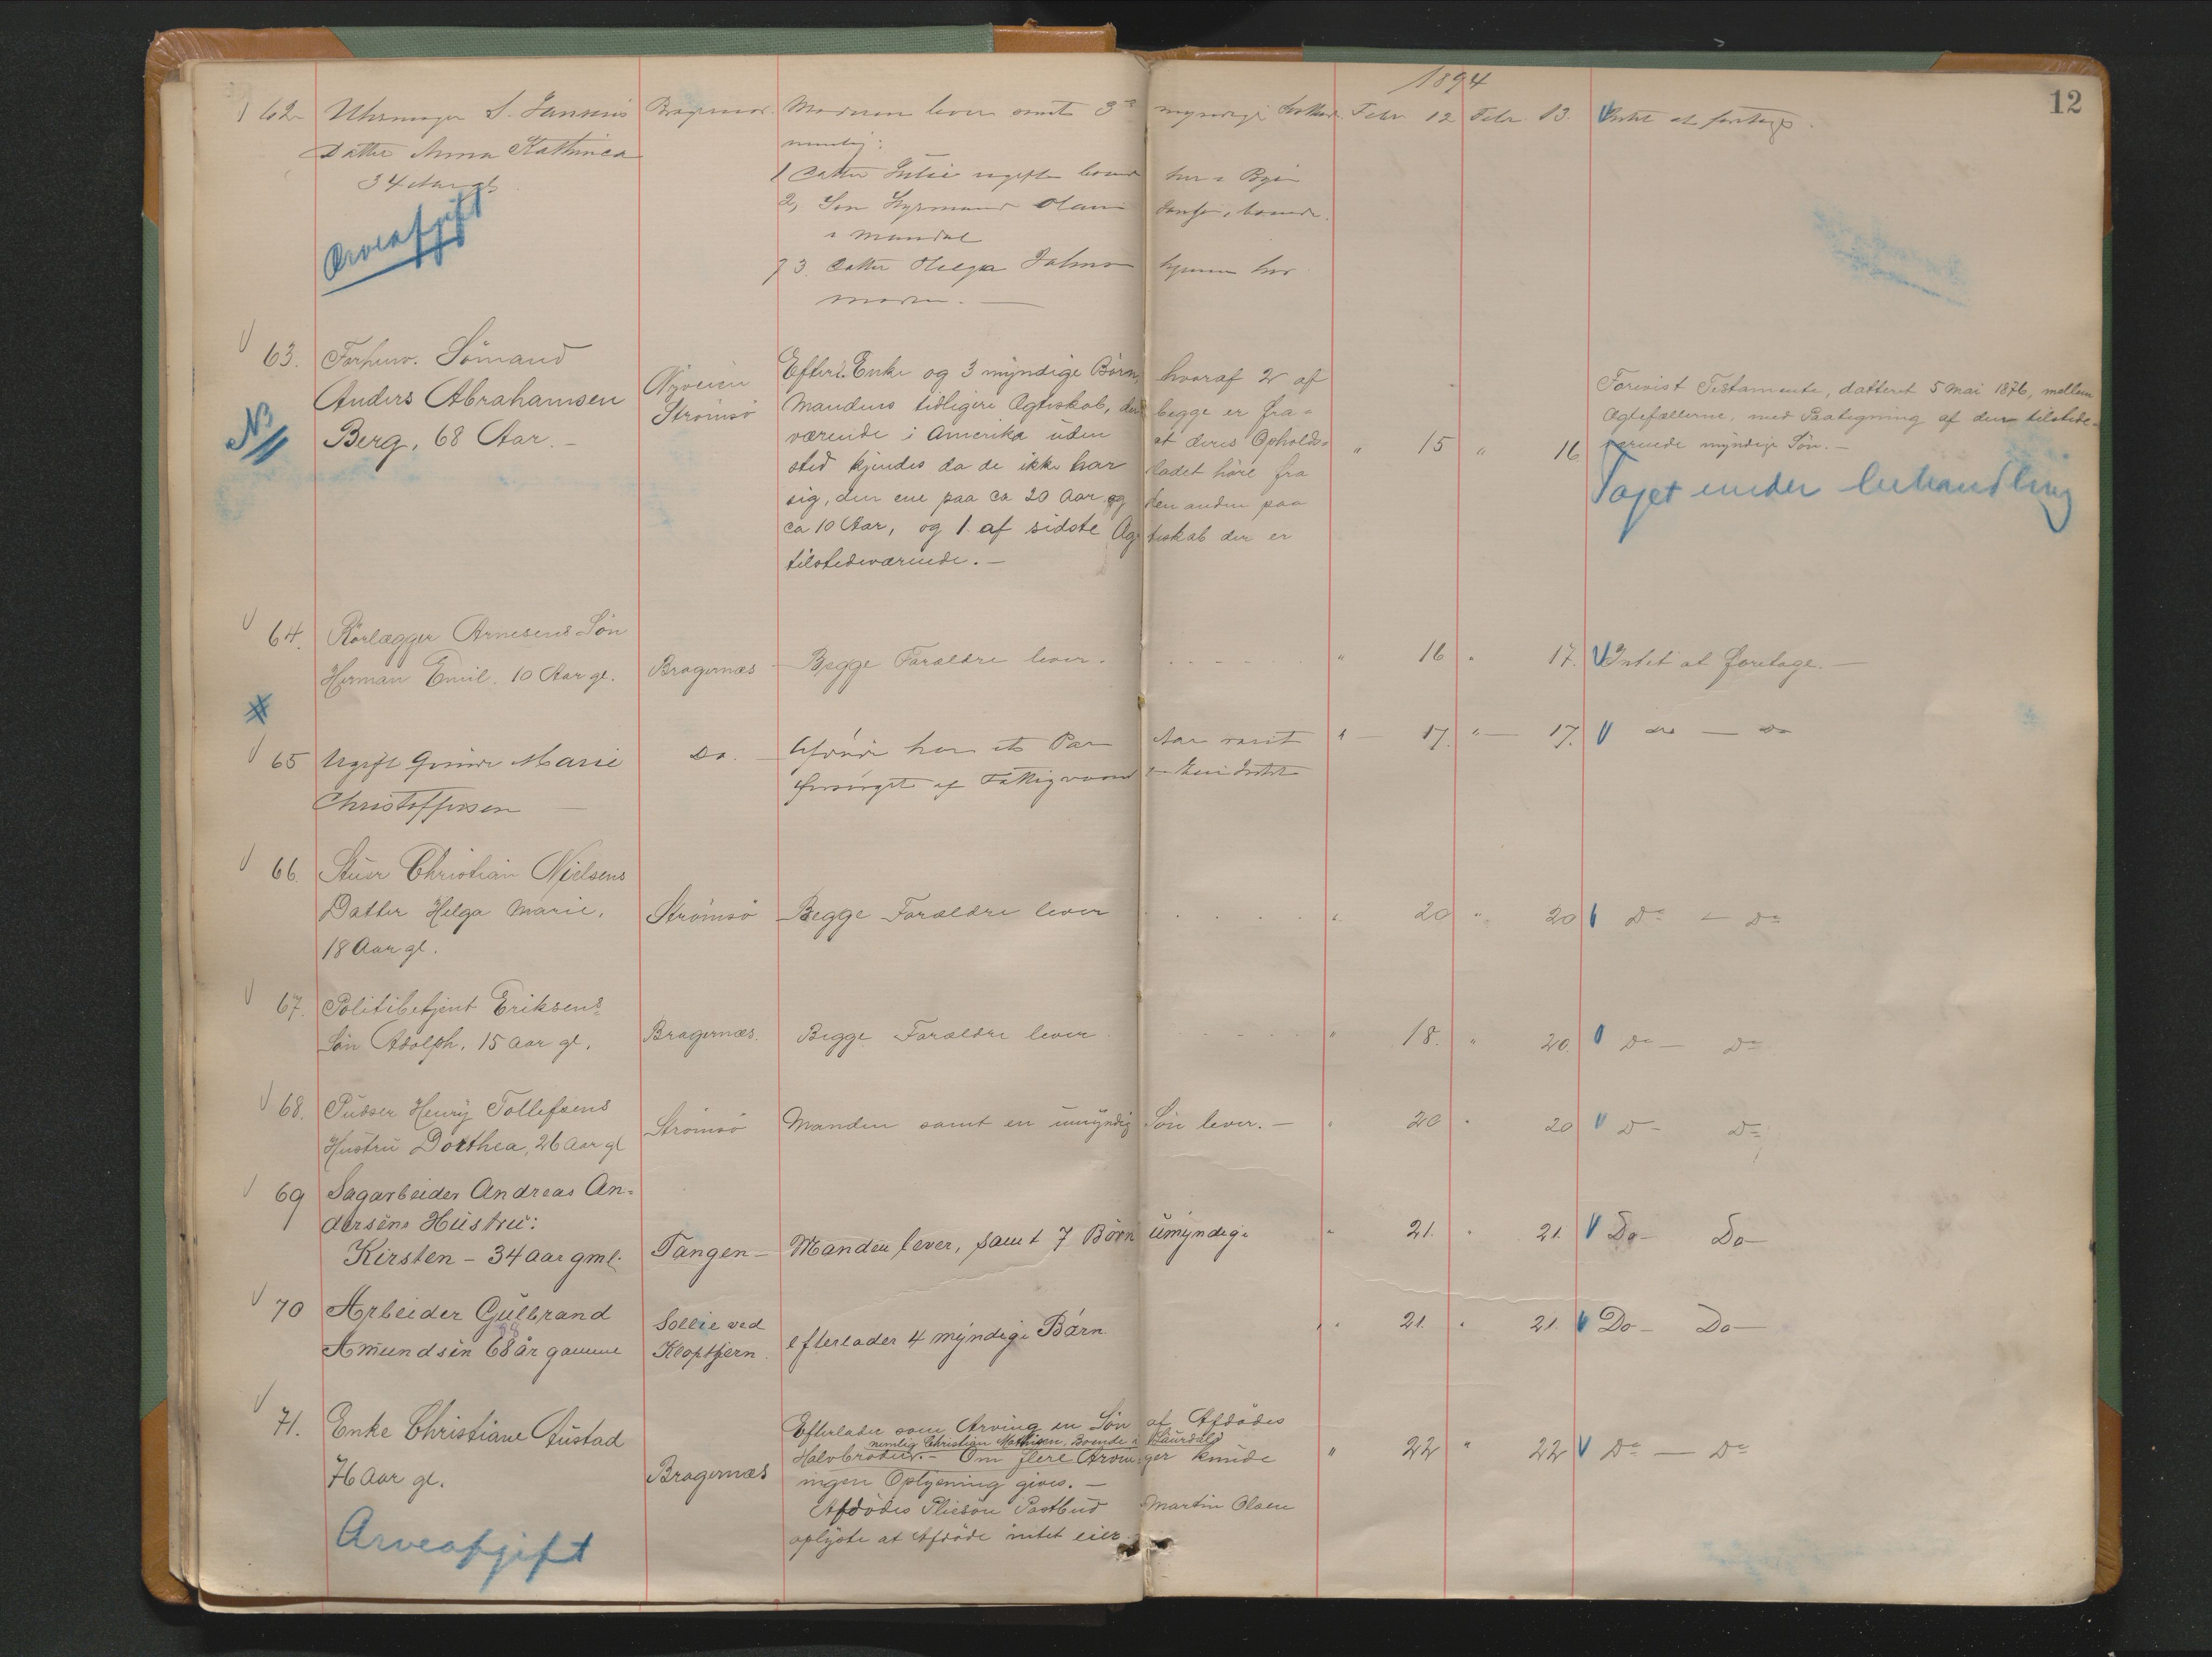 1894
12
62 Uhrmager S. Jansens Bragernæs. Moderen lever samt 3 myndige Febr. 12 Febr. 13. Intet at foretage.
Datter Anna Kathinca nemlig:
34 Aar gl. 1 Datter Julie ugift boende her i Byen
2, Søn Styrmand Olaus Jansen, boende
i Mandal
3. Datter Helga hjemme hos
moren. —
Arveafgift
63. Forhenv. Sömand
Anders Abrahamsen
Berg, 68 Aar. —
NB
Nyveien
Strömsö
Efterl. Enke og 3 myndige Börn, hvoraf 2 af
Mandens tidligere Ægteskab, der begge er fra=
værende i Amerika uden at deres Opholds=
sted kjendes da de ikke har ladet höre fra
sig, den ene paa ca 20 Aar og den anden paa
ca 10 Aar, og 1 af sidste Ægteskab der er
tilstedeværende. —
" 15 " 16
Forevist Testamente, datteret 5 Mai 1876, mellem
Ægtefællerne, med Paategning af den tilstede=
værende myndige Sön. —
Taget under behandling
64. Rörlægger Arnesens Sön
Herman Emil. 10 Aar gl. Bragernæs — Begge Forældre lever. " 16 " 17. Intet at foretage. —
65 Ugift Qvinde Marie Do. — Afdöde har et Par Aar været " — 17. " — 17. do — do
Christoffersen — forsörget af Fattigvæsenet
66. Stuer Christian Nielsens
Datter Helga Marie, Strömsö Begge Forældre lever " 20 " 20 Do — Do
18 Aar gl.
67. Politibetjent Eriksens
Sön Adolph, 15 Aar gl. Bragernæs. Begge Forældre lever " 18. " 20. Do — Do
68. Pudser Henry Tollefsens
Hustru Dorthea, 26 Aar gl Strömsö Manden samt en umyndig Sön lever. — " 20 " 20 Do Do
69 Sagarbeider Andreas An=
dersens Hustru:
Kirsten – 34 aar gml. Tangen — Manden lever, samt 7 Börn umyndige " 21. " 21. Do — Do —
70 Arbeider Gulbrand
Amundsen 68 år gamme
68
Sollie ved
Kloptjern.
efterlader 4 myndige Børn " 21. " 21. Do — Do —
71. Enke Christiane Austad
76 Aar gl. Bragernæs
Efterlader som Arving en Sön af Afdödes
nemlig Christian Mathisen, Boende i Laurdal
Halvbroder. — Om flere Arvinger kunde
ingen Oplysning gives. —
Afdödes Pliesön Postbud Martin Olsen
oplyste at Afdöde intet eier.
" 22 " 22 Do — Do
Arveafgift